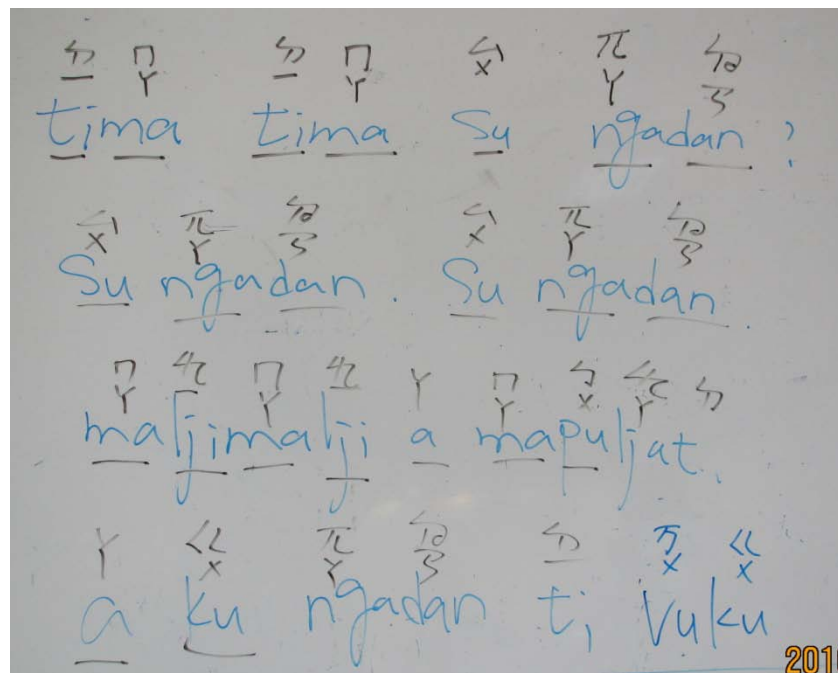 ㄉㄧ ㄇㄚ ㄉㄧ ㄇㄚ ㄙㄨ ㄫㄚ ㄉㄢ
tima tima su ngadan ?
ㄙㄨ ㄫㄚ ㄉㄢ ㄙㄨ ㄫㄚ ㄉㄢ
Su ngadan . Su ngadan .
ㄇㄚ ㄇㄚ ㄚ ㄇㄚ ㄅㄨ ㄉ
maljimalji a mapuljat .
ㄚ ㄍㄨ ㄫㄚ ㄉㄢ ㄉㄧ ㄪㄨ ㄍㄨ
a ku ngadan ti Vuku